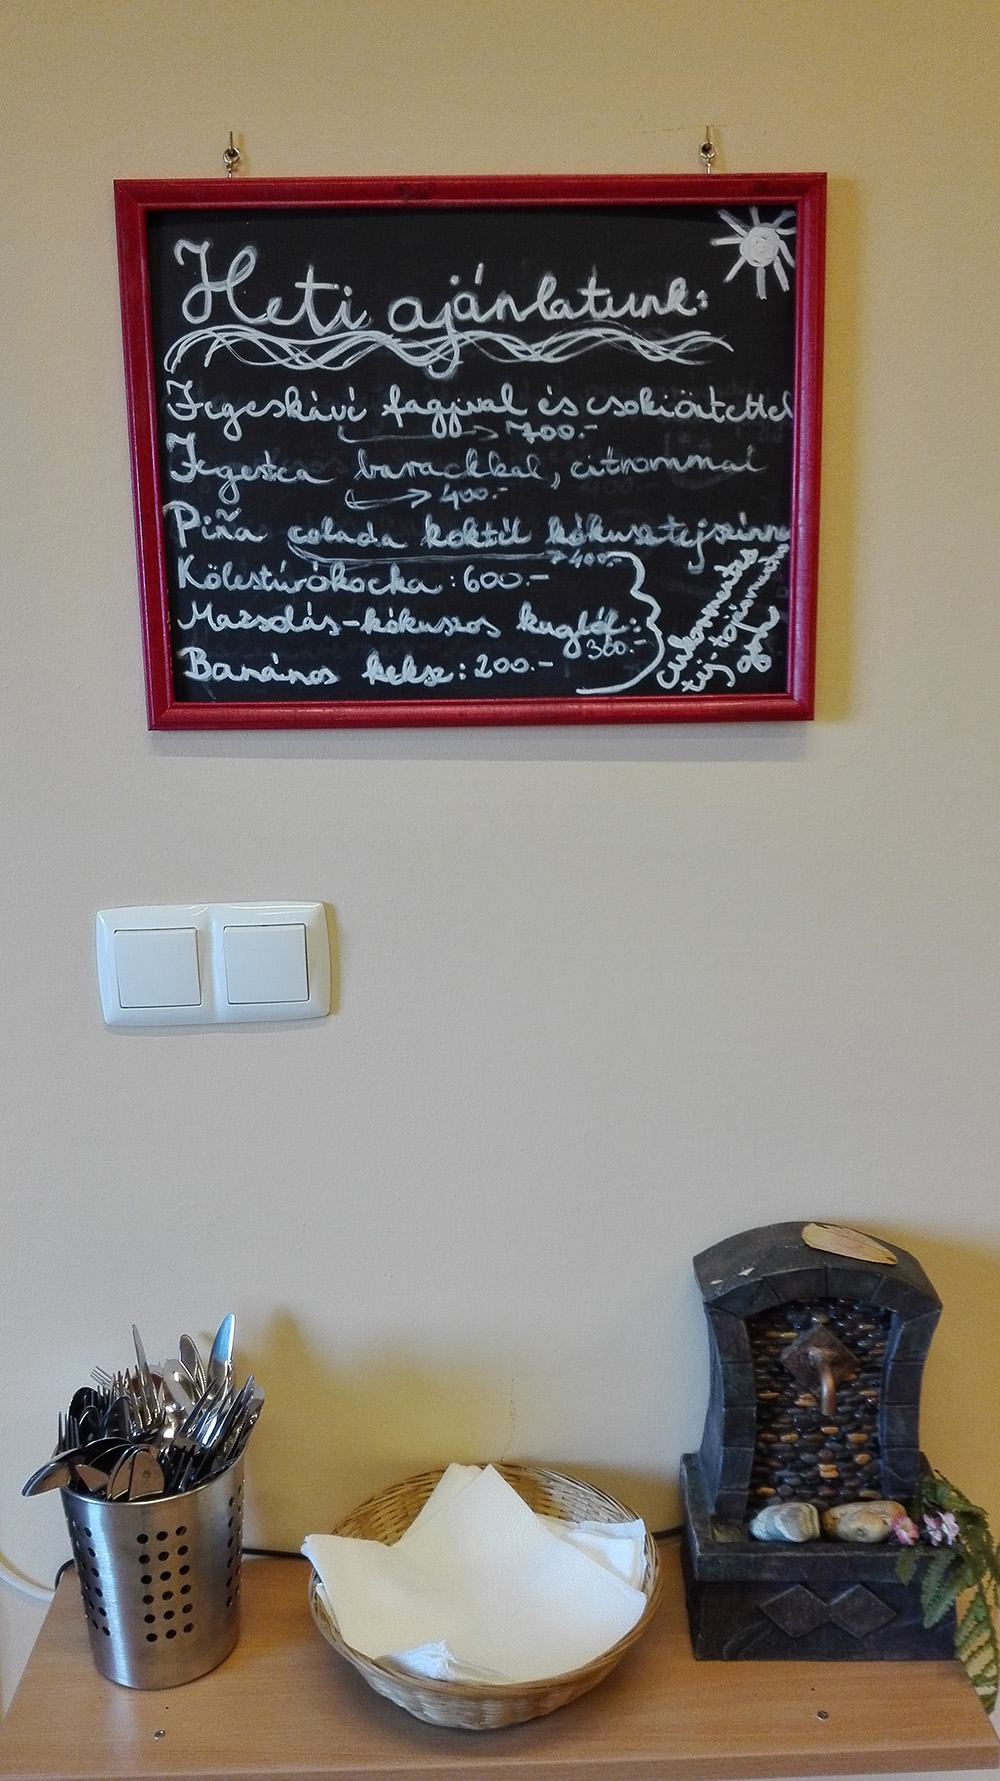 Heti ajánlatunk:
Jegeskávé fagyival és csokiöntettel
700.-
Jegestea barackkal, citrommal
400.-
Piña colada koktél kókusztejszínnel
400.-
Kölestúrókocka : 600.-
Mazsolás-kókuszos kuglóf:
360.-
Banános keksz : 200.-
cukormentes
tej-tojásmentes